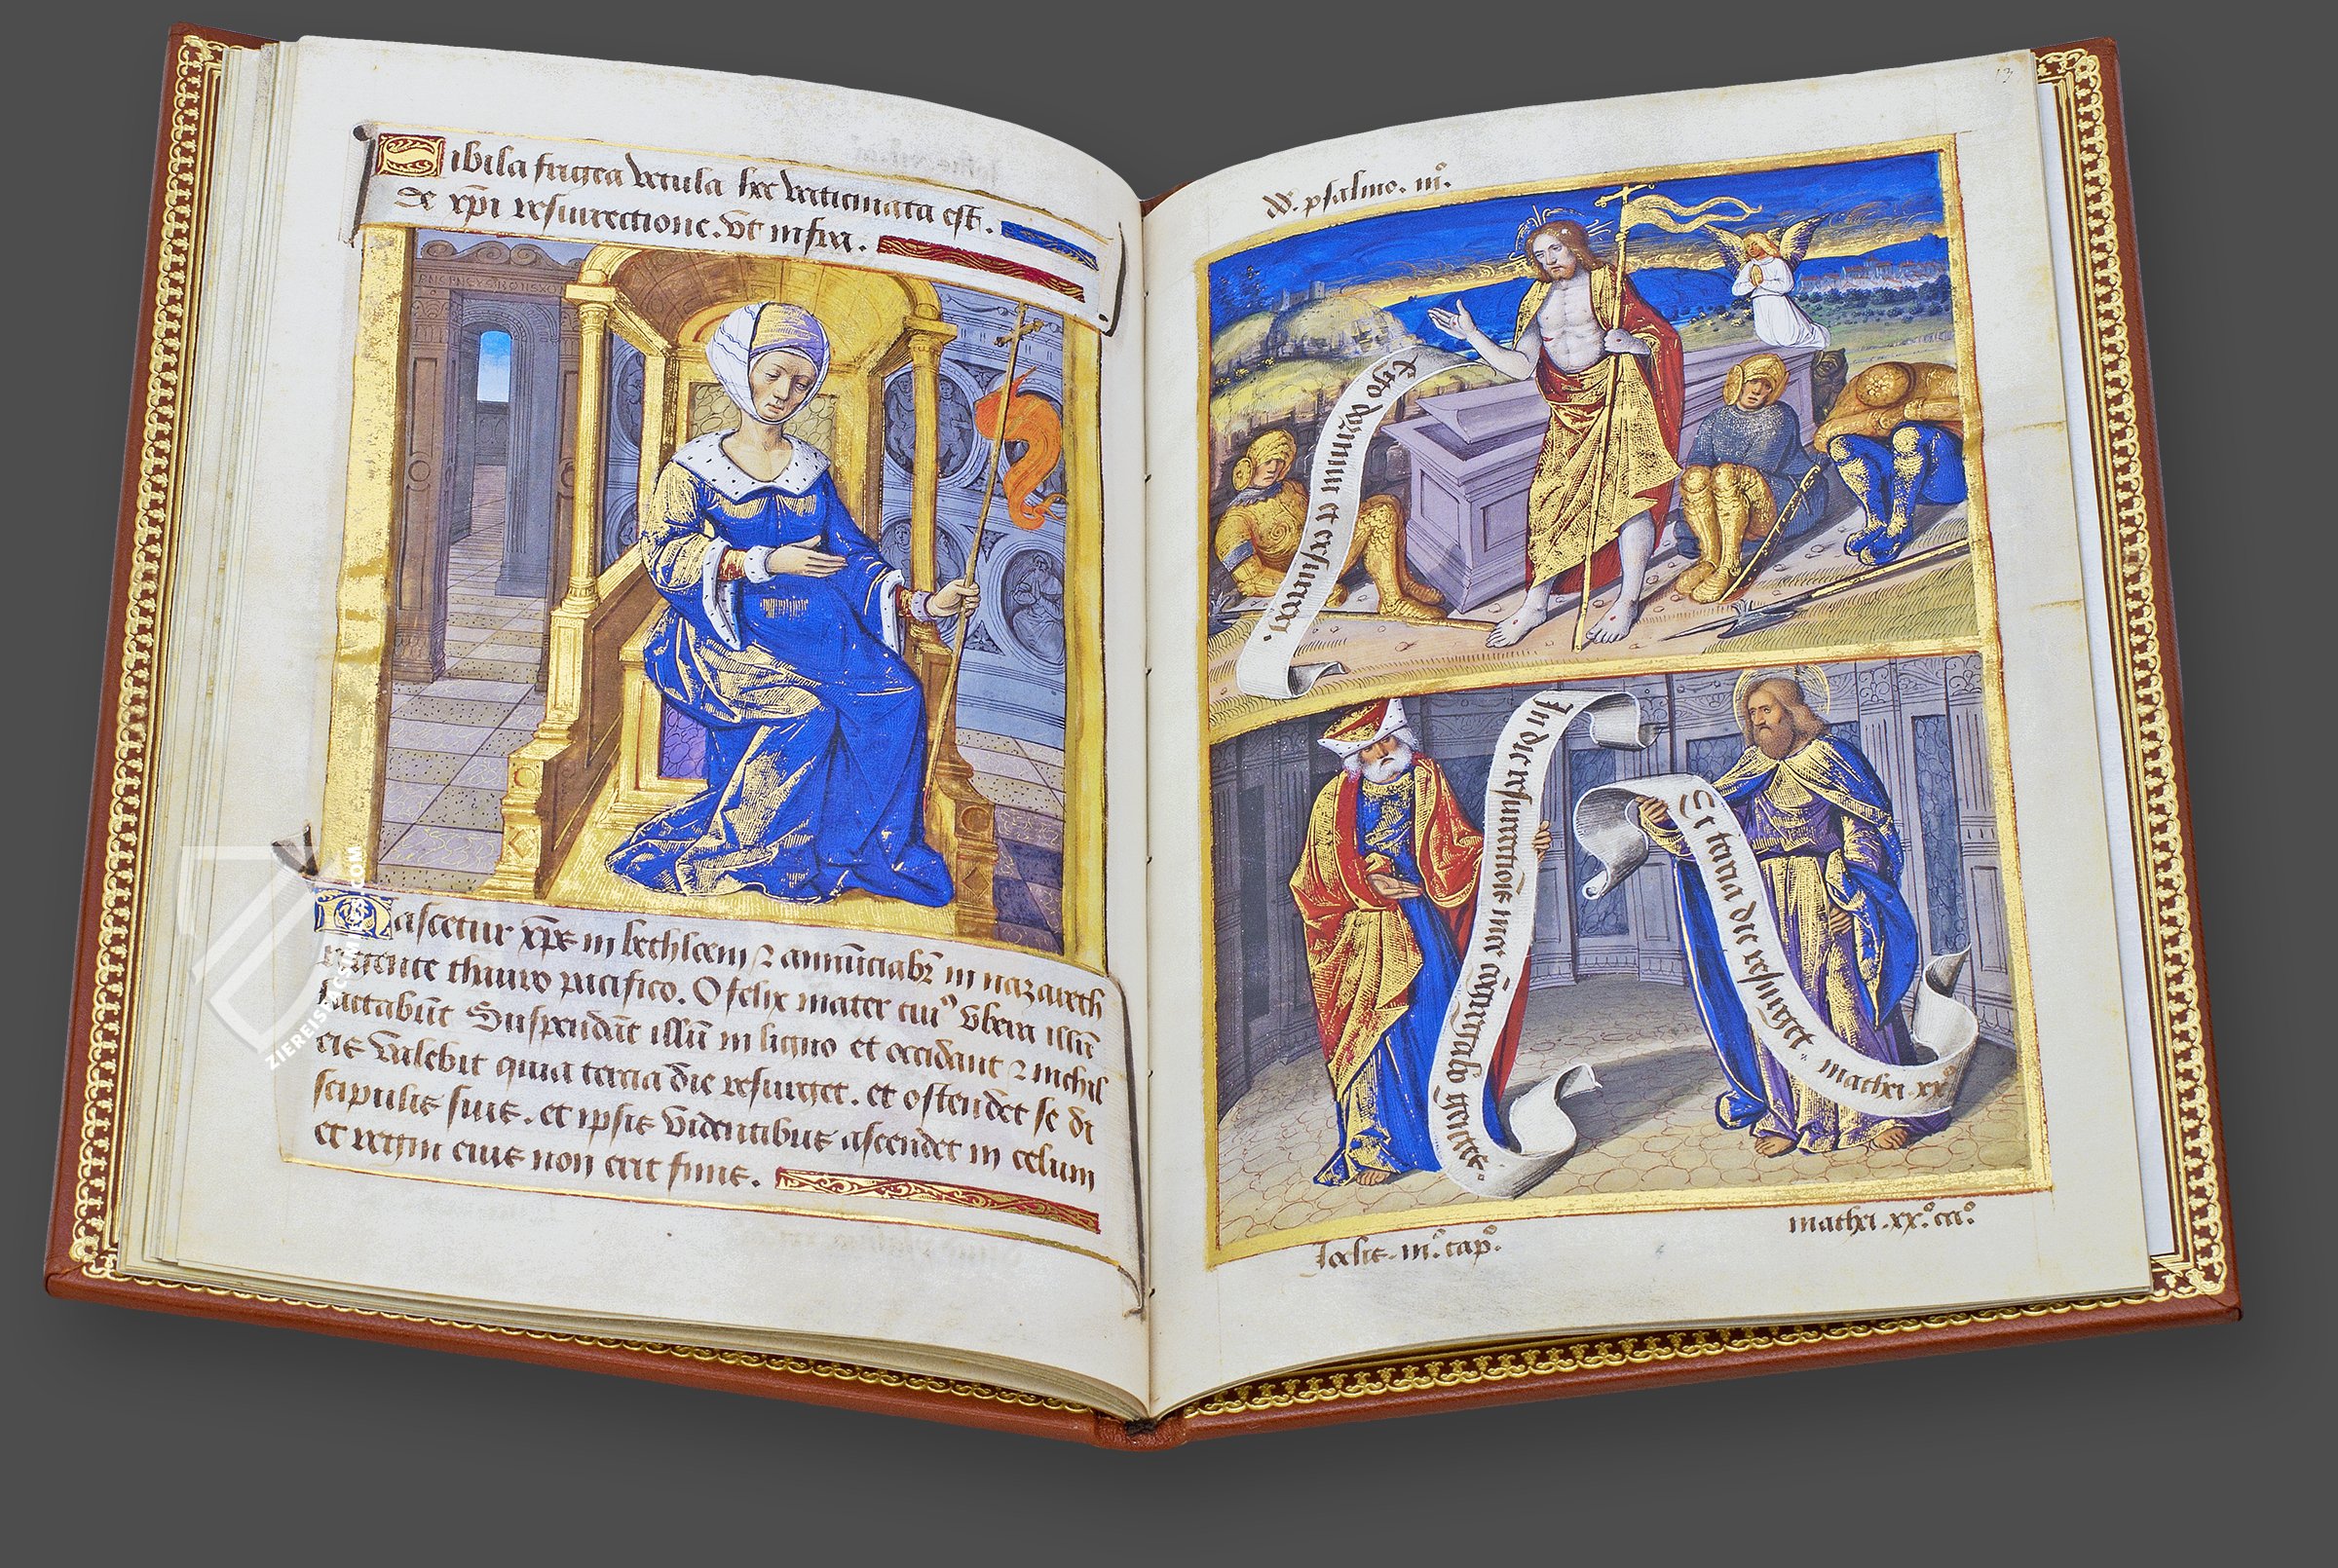 Sibila frigea vetula hec vaticinata est.
de xp̄i resurrectione. vt infra.
Nascetur xp̄s in bethleem ⁊ annūciabr̄ in nazareth
regente thauro pacifico. O felix mater cuiꝰ vbera illū
lactabūt Suspendāt illū in ligno et occidant ⁊ nichil
eis valebit quia tercia die resurget. et ostendet se di
scipulis suis. et ipsis videntibus ascendet in celum
et regni eius non erit finis.
ZIEREIS
.COM
13
psalmo. iiiº.
Ego dormiui et resurrexi.
In die resurrectionis mee cōgregabo gentes.
Et tercia die resurget. mathei. xxº
Joelis. iiiº. capº.
mathei. xx.º caº.